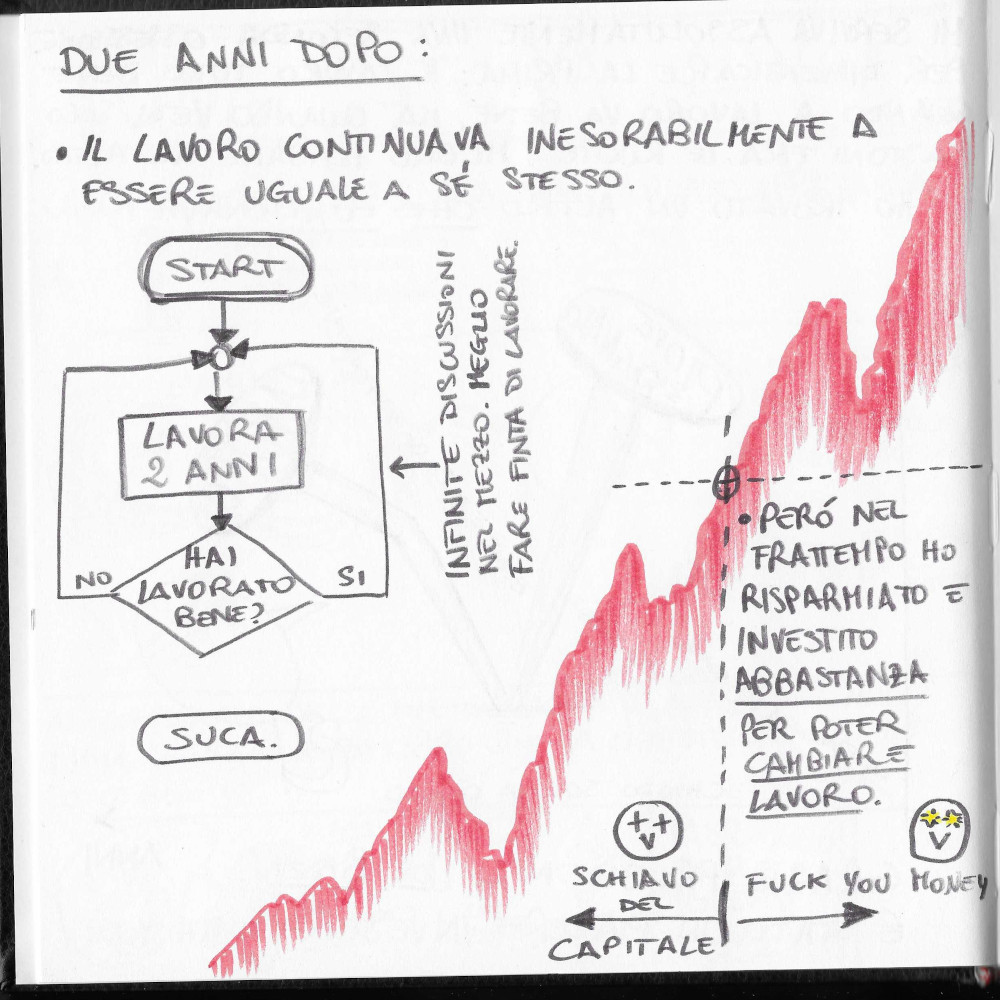 DUE ANNI DOPO:
• IL LAVORO CONTINUAVA INESORABILMENTE A
ESSERE UGUALE A SÉ STESSO.
START
LAVORA
2 ANNI
HAI
LAVORATO
BENE?
NO
SI
SUCA.
INFINITE DISCUSSIONI
NEL MEZZO. MEGLIO
FARE FINTA DI LAVORARE.
• PERÓ NEL
FRATTEMPO HO
RISPARMIATO E
INVESTITO
ABBASTANZA
PER POTER
CAMBIARE
LAVORO.
SCHIAVO
DEL
CAPITALE
FUCK YOU MONEY